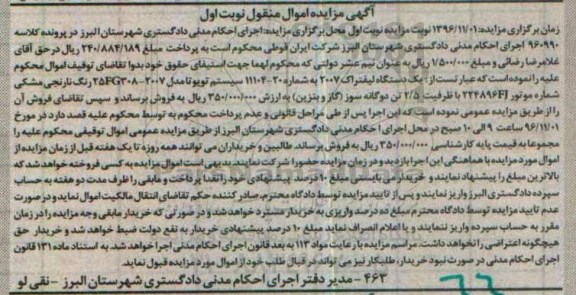 آگهی مزایده اموال منقول نوبت اول
زمان برگزاری مزایده: ۱۳۹۶/۱۱/۰۱ نوبت مزایده نوبت اول محل برگزاری مزایده: اجرای احکام مدنی دادگستری شهرستان البرز در پرونده کلاسه
۹۶۰۹۹۰ اجرای احکام مدنی دادگستری شهرستان البرز شرکت ایران قوطی محکوم است به پرداخت مبلغ ۲۴۰/۸۸۴/۱۸۹ ریال در حق آقای
غلامرضا رضائی و مبلغ ۷/۵۰۰/۰۰۰ ریال به عنوان نیم عشر دولتی که محکوم لهما جهت استیفای حقوق خود بدوا تقاضای توقیف اموال محکوم
علیه را نموده است که عبارتست از: یک دستگاه لیفتراک ۲۰۰۷ به شماره ۲۰-۱۱۱۰۴ سیستم تویوتا مدل ۲۰۰۷-۲۵FG۳۰۸ رنگ نارنجی مشکی
شماره موتور ۲۲۴۸۹۶FJ با ظرفیت ۲/۵ تن دوگانه سوز (گاز و بنزین) به ارزش ۳۵۰/۰۰۰/۰۰۰ ریال به فروش برساند و سپس تقاضای فروش آن
را از طریق مزایده عمومی نموده است که این اجرا پس از طی مراحل قانونی و عدم پرداخت محکوم به توسط محکوم علیه قصد دارد در مورخ
۹۶/۱۱/۰۱ ساعت ۹ الی ۱۰ صبح در محل اجرای احکام مدنی دادگستری شهرستان البرز از طریق مزایده عمومی اموال توقیفی محکوم علیه را
مجموعا به قیمت پایه کارشناسی ۳۵۰/۰۰۰/۰۰۰ ریال به فروش برساند. طالبین و خریداران می توانند همه روزه تا یک هفته قبل از زمان مزایده از
اموال مورد مزایده با هماهنگی این اجرا بازدید و در زمان مزایده حضورا شرکت نمایند. بدیهی است اموال مزایده به کسی فروخته خواهد شد که
بالاترین مبلغ را پیشنهاد نمایند و خریدار می بایستی مبلغ ۱۰ درصد پیشنهادی خود را نقدا پرداخت و مابقی را ظرف مدت دو هفته به حساب
سپرده دادگستری البرز واریز نمایند و پس از تایید مزایده توسط دادگاه محترم، صادر کننده حکم تقاضای انتقال مالکیت اموال نماید و در صورت
عدم تایید مزایده توسط دادگاه محترم مبلغ ده درصد واریزی به خریدار مسترد خواهد شد و در صورتی که خریدار مابقی وجه مزایده را در زمان
مقرر به حساب سپرده واریز ننماید و یا اعلام انصراف نماید مبلغ ۱۰ درصد پیشنهادی خریدار به نفع دولت ضبط خواهد شد و خریدار حق
هیچگونه اعتراضی را نخواهد داشت. مراسم مزایده با رعایت مواد ۱۱۳ به بعد قانون اجرای احکام مدنی اجرا خواهد شد. به استناد ماده ۱۳۱ قانون
اجرای احکام مدنی در صورت نبود خریدار، طلبکار نیز می تواند در قبال طلب خود از اموال مورد مزایده قبول نماید.
۴۶۳- مدیر دفتر اجرای احکام مدنی دادگستری شهرستان البرز - نقی لو